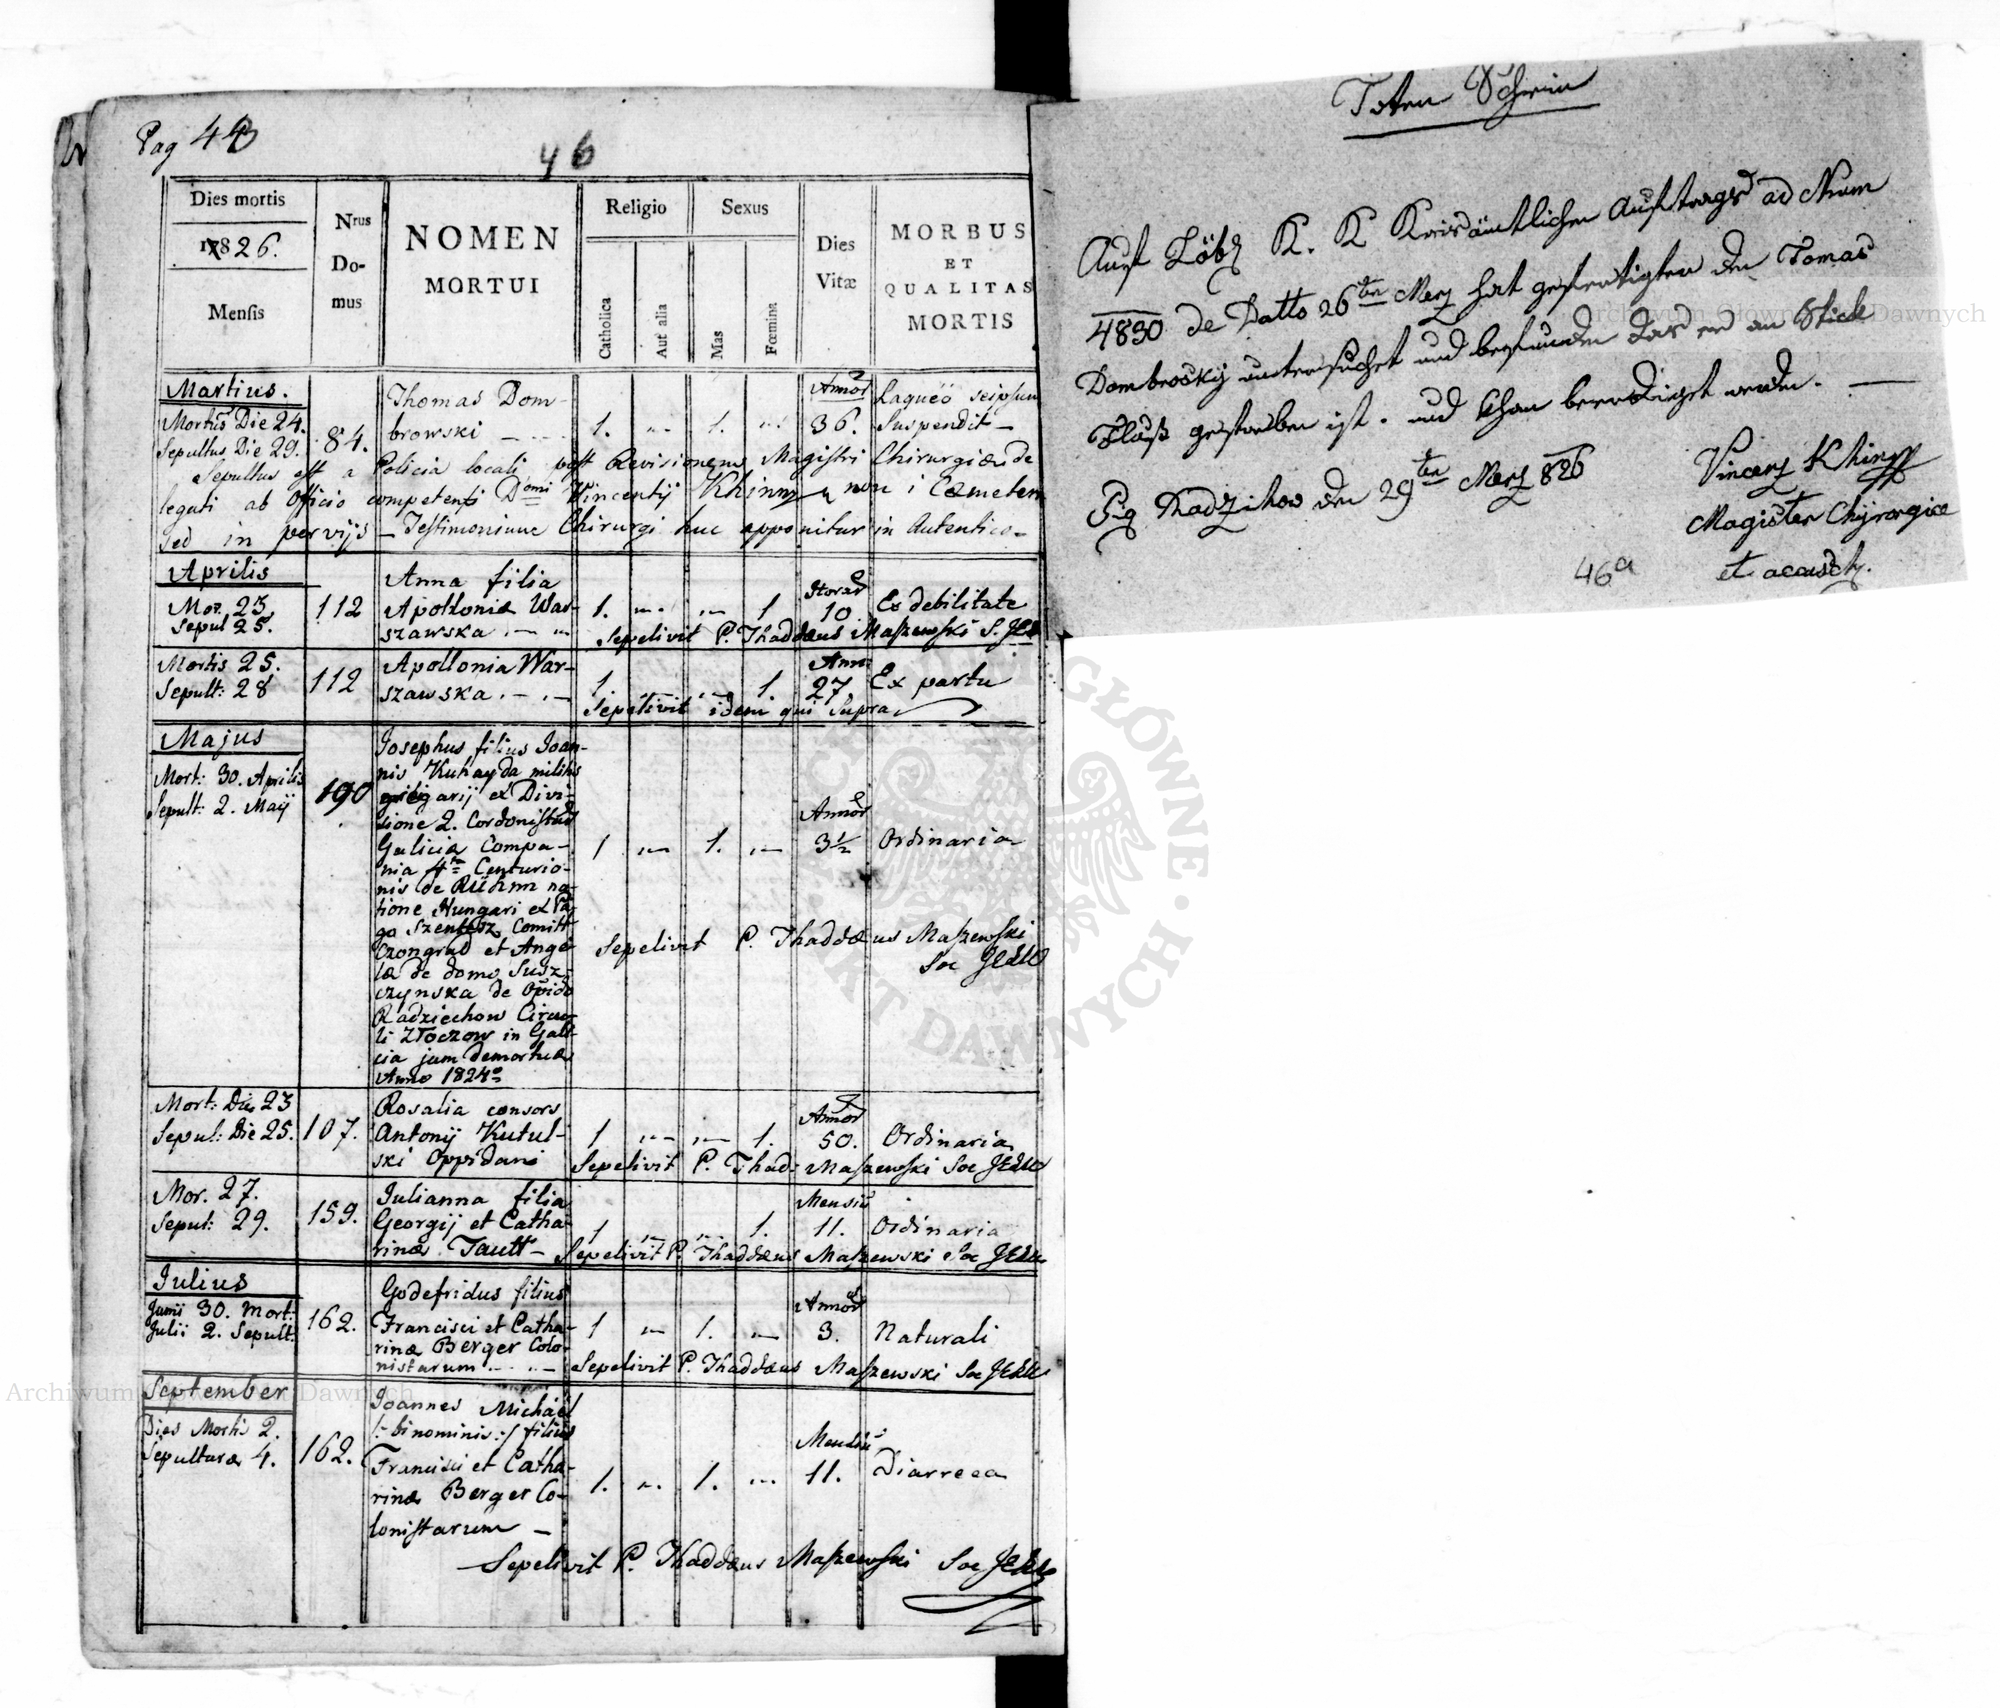 Pag 44
46
Dies mortis
1826.
Mensis
Nrus
Do-
mus
NOMEN
MORTUI
Religio
Catholica
Aut alia
Sexus
Mas
Fœmina
Dies
Vitæ
MORBUS
ET
QUALITAS
MORTIS
Martius.
Mortus Die 24.
Sepultus Die 29.
84.
Thomas Dom-
browski
1. „ 1. „
Annor
36.
Laqueo seipsum
Suspendit
Sepultus est a Policia locali post Revisionem Magistri Chirurgiæ de
legati ab Officio competenti Domi Vincentij Khinn non i Cæmeterio
sed in pervijs – Testimonium Chirurgi huc apponitur in Autentico
Aprilis
Mor. 23.
Sepul 25.
112
Anna filia
Apolloniæ War-
szawska
1. „ „ 1
Horar
10
Ex debilitate
Sepelivit P. Thaddæus Maszewski S. J.
Mortis 25.
Sepult: 28
112
Apollonia War-
szawska
1 „ „ 1.
Ann:
27.
Ex partu
Sepelivit idem qui Supra
Majus
Mort: 30. Aprilis
Sepult: 2. Maij
190
Josephus filius Joan-
nis Kuhayda militis
gregarij ex Divi-
sione 2. Cordonistar
Galiciæ Compa-
nia 4ta Centurio-
nis de na-
tione Hungari ex Pa-
go Szentesz Comitt
Czongrad et Ange-
læ de domo Susz-
czynska de Opido
Radziechow Circu-
li Złoczow in Gali-
cia jam demortuæ
Anno 1824o
1 „ 1. „
Annor
3½
Ordinaria
Sepelivit P. Thaddæus Maszewski
Soc
Mort: Die 23
Sepul: Die 25.
107.
Rosalia consors
Antonij Kutul-
ski Oppidani
1 „ „ 1.
Annor
50.
Ordinaria
Sepelivit P. Thad: Maszewski Soc
Mor. 27.
Sepul: 29.
159.
Julianna filia
Georgij et Catha-
rinæ Tautt
1 „ „ 1.
Mensiu
11.
Ordinaria
Sepelivit P. Thaddæus Maszewski Soc
Julius
Junii 30. Mort:
Julii 2. Sepult:
162.
Godefridus filius
Francisci et Catha-
rinæ Berger Colo-
nistarum
1 „ 1. „
Annor
3.
Naturali
Sepelivit P. Thaddæus Maszewski Soc
September
Dies Mortis 2.
Sepulturæ 4.
162.
Joannes Michäel
/: binominis :/ filius
Francisci et Catha-
rinæ Berger Co-
lonistarum
1. „ 1. „
Mensiu
11.
Diarreea
Sepelivit P. Thaddæus Maszewski Soc
Toten Schein
Auf Löbl K. K Kreisämtlichen Auftrags ad Num
4830 de Datto 26ten Merz hat gefertigter den Tomas
Dombroskÿ untersuchet und befunden das er an Stick
Fluß gestorben ist. und khan beerdiget werden.
Sig Radzihow den 29ten Merz 826
Vincenz Khinn
Magister Chÿrorgiæ
et
46a
Archiwum Główne Akt Dawnych
Archiwum Główne Akt Dawnych
ARCHIWUM GŁÓWNE AKT DAWNYCH